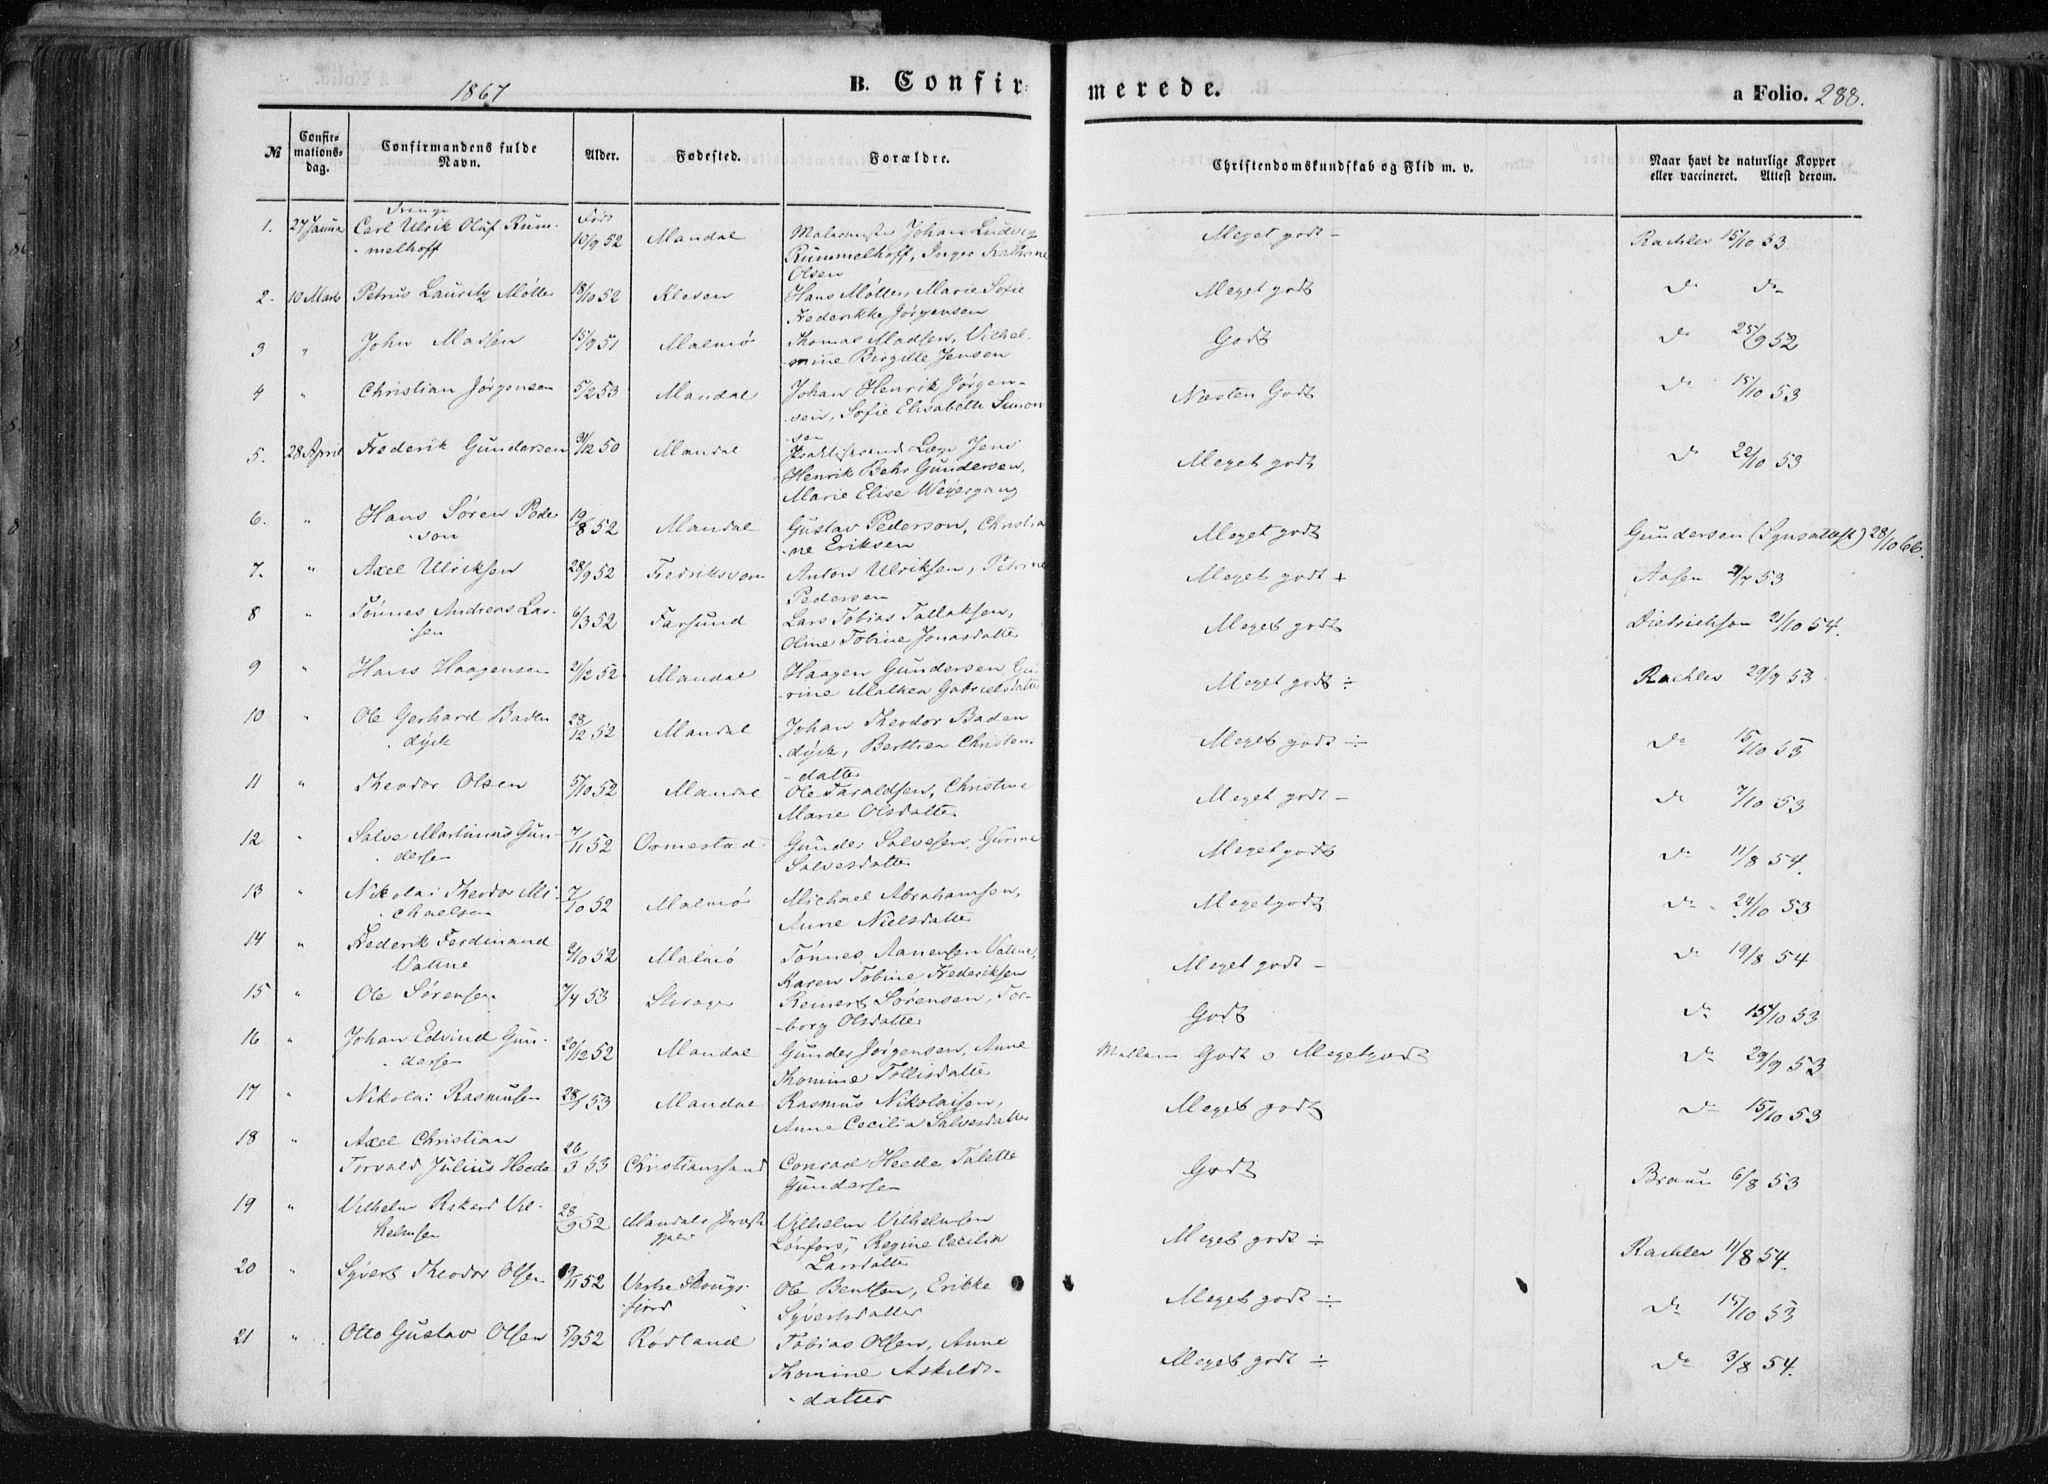 1867 B. Confirmerede. a Folio. 288.
№ Confirmationsdag. Confirmandens fulde Navn. Alder. Fødested. Forældre. Christendomskundskab og Flid m. v. Naar havt de naturlige Kopper eller vaccineret. Attest derom.
Drenge Født
1. 27 Janua Carl Ulrik Oluf Rum- 10/9 52 Mandal Johan Ludvig Meget godt - Rachlev 15/10 53
-melhoff Rummelhoff, Inger Kathrine
Olsen
2. 10 Marts Petrus Lauritz Møller 18/10 52 Kleven Hans Møller, Marie Sofie Meget godt do do
Frederikke Jørgensen
3 " John Madsen 15/9 51 Malmø Thomas Madsen, Vilhel- Godt do 25/9 52
-mine Birgitte Jensen
4 " Christian Jørgensen 5/2 53 Mandal Johan Henrik Jørgen- Næsten Godt do 15/10 53
sen, Sofie Elisabeth Simon
sen
5. 28 April Frederik Gundersen 31/12 50 Mandal Praktiserend Læge Jens Meget godt do 22/10 53
Henrik Behr Gundersen,
Marie Elise Weyergang
6. " Hans Søren Peder 19/8 52 Mandal Gustav Pederson, Christia Meget godt Gundersen (Synsattest) 28/10 66.
-son -ne Eriksen
7. " Axel Ulriksen 28/9 52 Fredriksvorn Anton Ulriksen, Petrine Meget godt + Aasen 2/7 53
Pedersen
8 " Tönnes Andreas Lar- 6/3 52 Farsund Lars Tobias Tallaksen, Meget godt Dietrichson 21/10 54.
-sen Oline Tobine Jonasdatter
9 " Hans Haagensen 21/12 52 Mandal Haagen Gundersen Gu Meget godt ÷ Rachlev 29/9 53
-rine Mathea Gabrielsdatter
10 " Ole Gerhard Baden 28/12 52 Mandal Johan Theodor Baden Meget godt ÷ do 15/10 53
-dyck -dyck, Berthea Christens
-datter
11 " Theodor Olsen 5/10 52 Mandal Ole Taraldsen, Christine Meget godt - do 7/10 53
Marie Olsdatter
12 " Salve Martinius Gun- 7/11 52 Ormestad Gunder Salvesen, Gurine Meget godt do 11/8 54.
-dersen Salvesdatter
13 " Nikolai Theodor Mi- 7/10 52 Malmø Michael Abrahamsen, Meget godt do 22/10 53
-chaelsen Anne Nielsdatter
14 " Frederik Ferdinand 2/10 52 Malmø Tönnes Aanensen Vatne, Meget godt - do 19/8 54
Vatne Karen Tobine Frederiksen
15 " Ole Sørensen 7/4 53 Reinert Sørensen, Tor- Godt do 15/10 53
-borg Olsdatter
16 " Johan Edvind Gun- 20/12 52 Mandal Gunder Jørgensen, Anne Mellem Godt o Meget godt do 29/9 53
-dersen Thomine Tollisdatter
17 " Nikolai Rasmusen 28/1 53 Mandal Rasmus Nikolaisen, Meget godt do 15/10 53
Anne Cecilia Salvesdatter
18 " Axel Christian
Torvald Julius Heede 26/3 53 Christianssand Conrad Heede Talette Godt Braun 6/8 53
Gundersen
19 " Vilhelm Rikard Vil- 28/9 52 Mandals Præste Vilhelm Vilhelmsen Meget godt ÷ Rachlev 11/8 54.
helmsen gjeld Lönfors, Regine Cecilia
Larsdatter
20 " Syvert Theodor Olsen 19/11 52 Vestre Skougs- Ole Bentsen, Erikke Meget godt ÷ do 15/10 53
fjord Syvertsdatter
21 " Otto Gustav Olsen 5/9 52 Rödland Tobias Olsen, Anne Meget godt ÷ do 3/8 54.
Thomine Askilds-
-datter